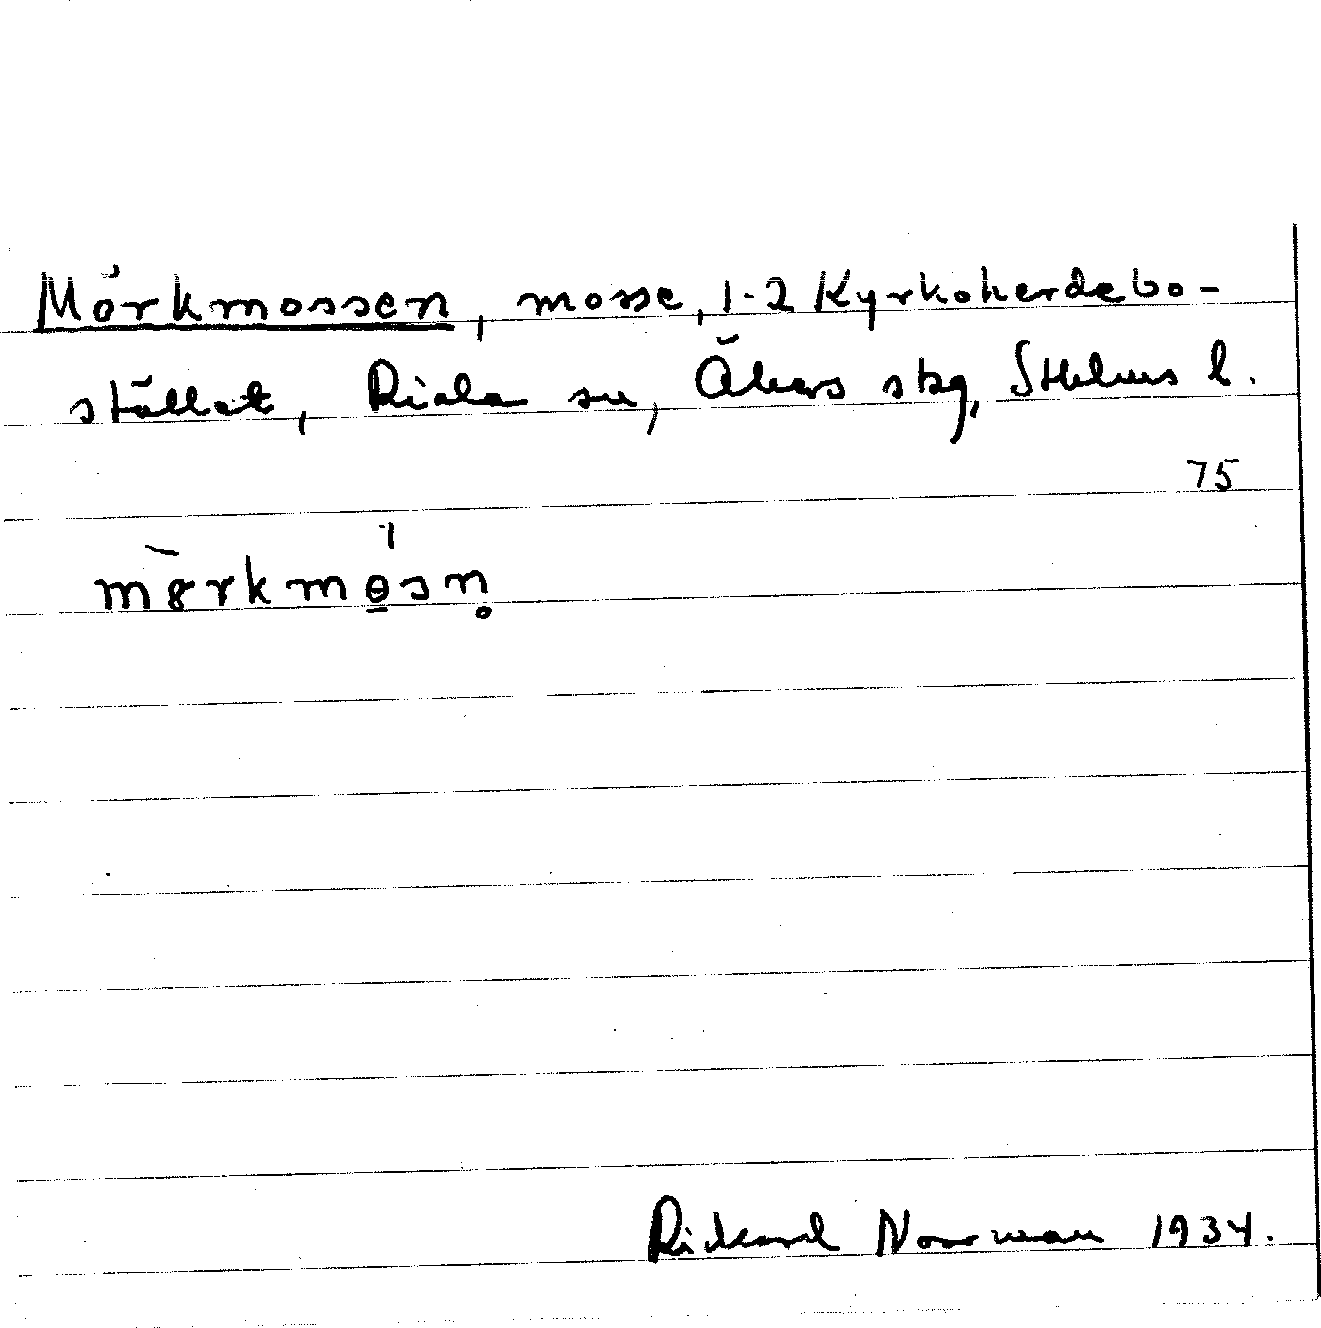 Mörkmossen, mosse, 1-2 Kyrkoherdebo-
stället, Riala sn, Åkers skg, Sthlms l.
75
mørkmɵ̠sn̥
Rickard Norrman 1934.